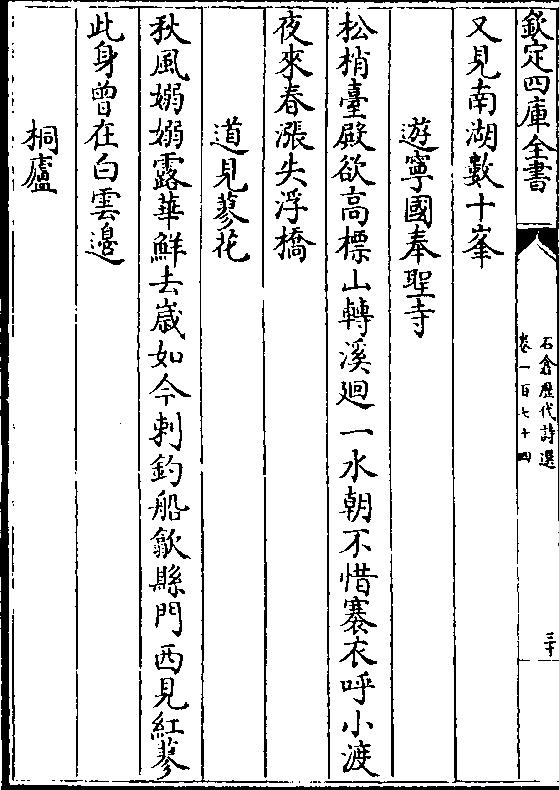 欽定四庫全書
石倉歷代詩選
卷一百七十四
三十
又見南湖數十峯
遊寧國奉聖寺
松梢臺殿欲高標山轉溪廻一水朝不惜褰衣呼小渡
夜來春漲失浮橋
道見蓼花
秋風嫋嫋露華鮮去歲如今刺釣船歙縣門西見紅蓼
此身曾在白雲邊
桐廬